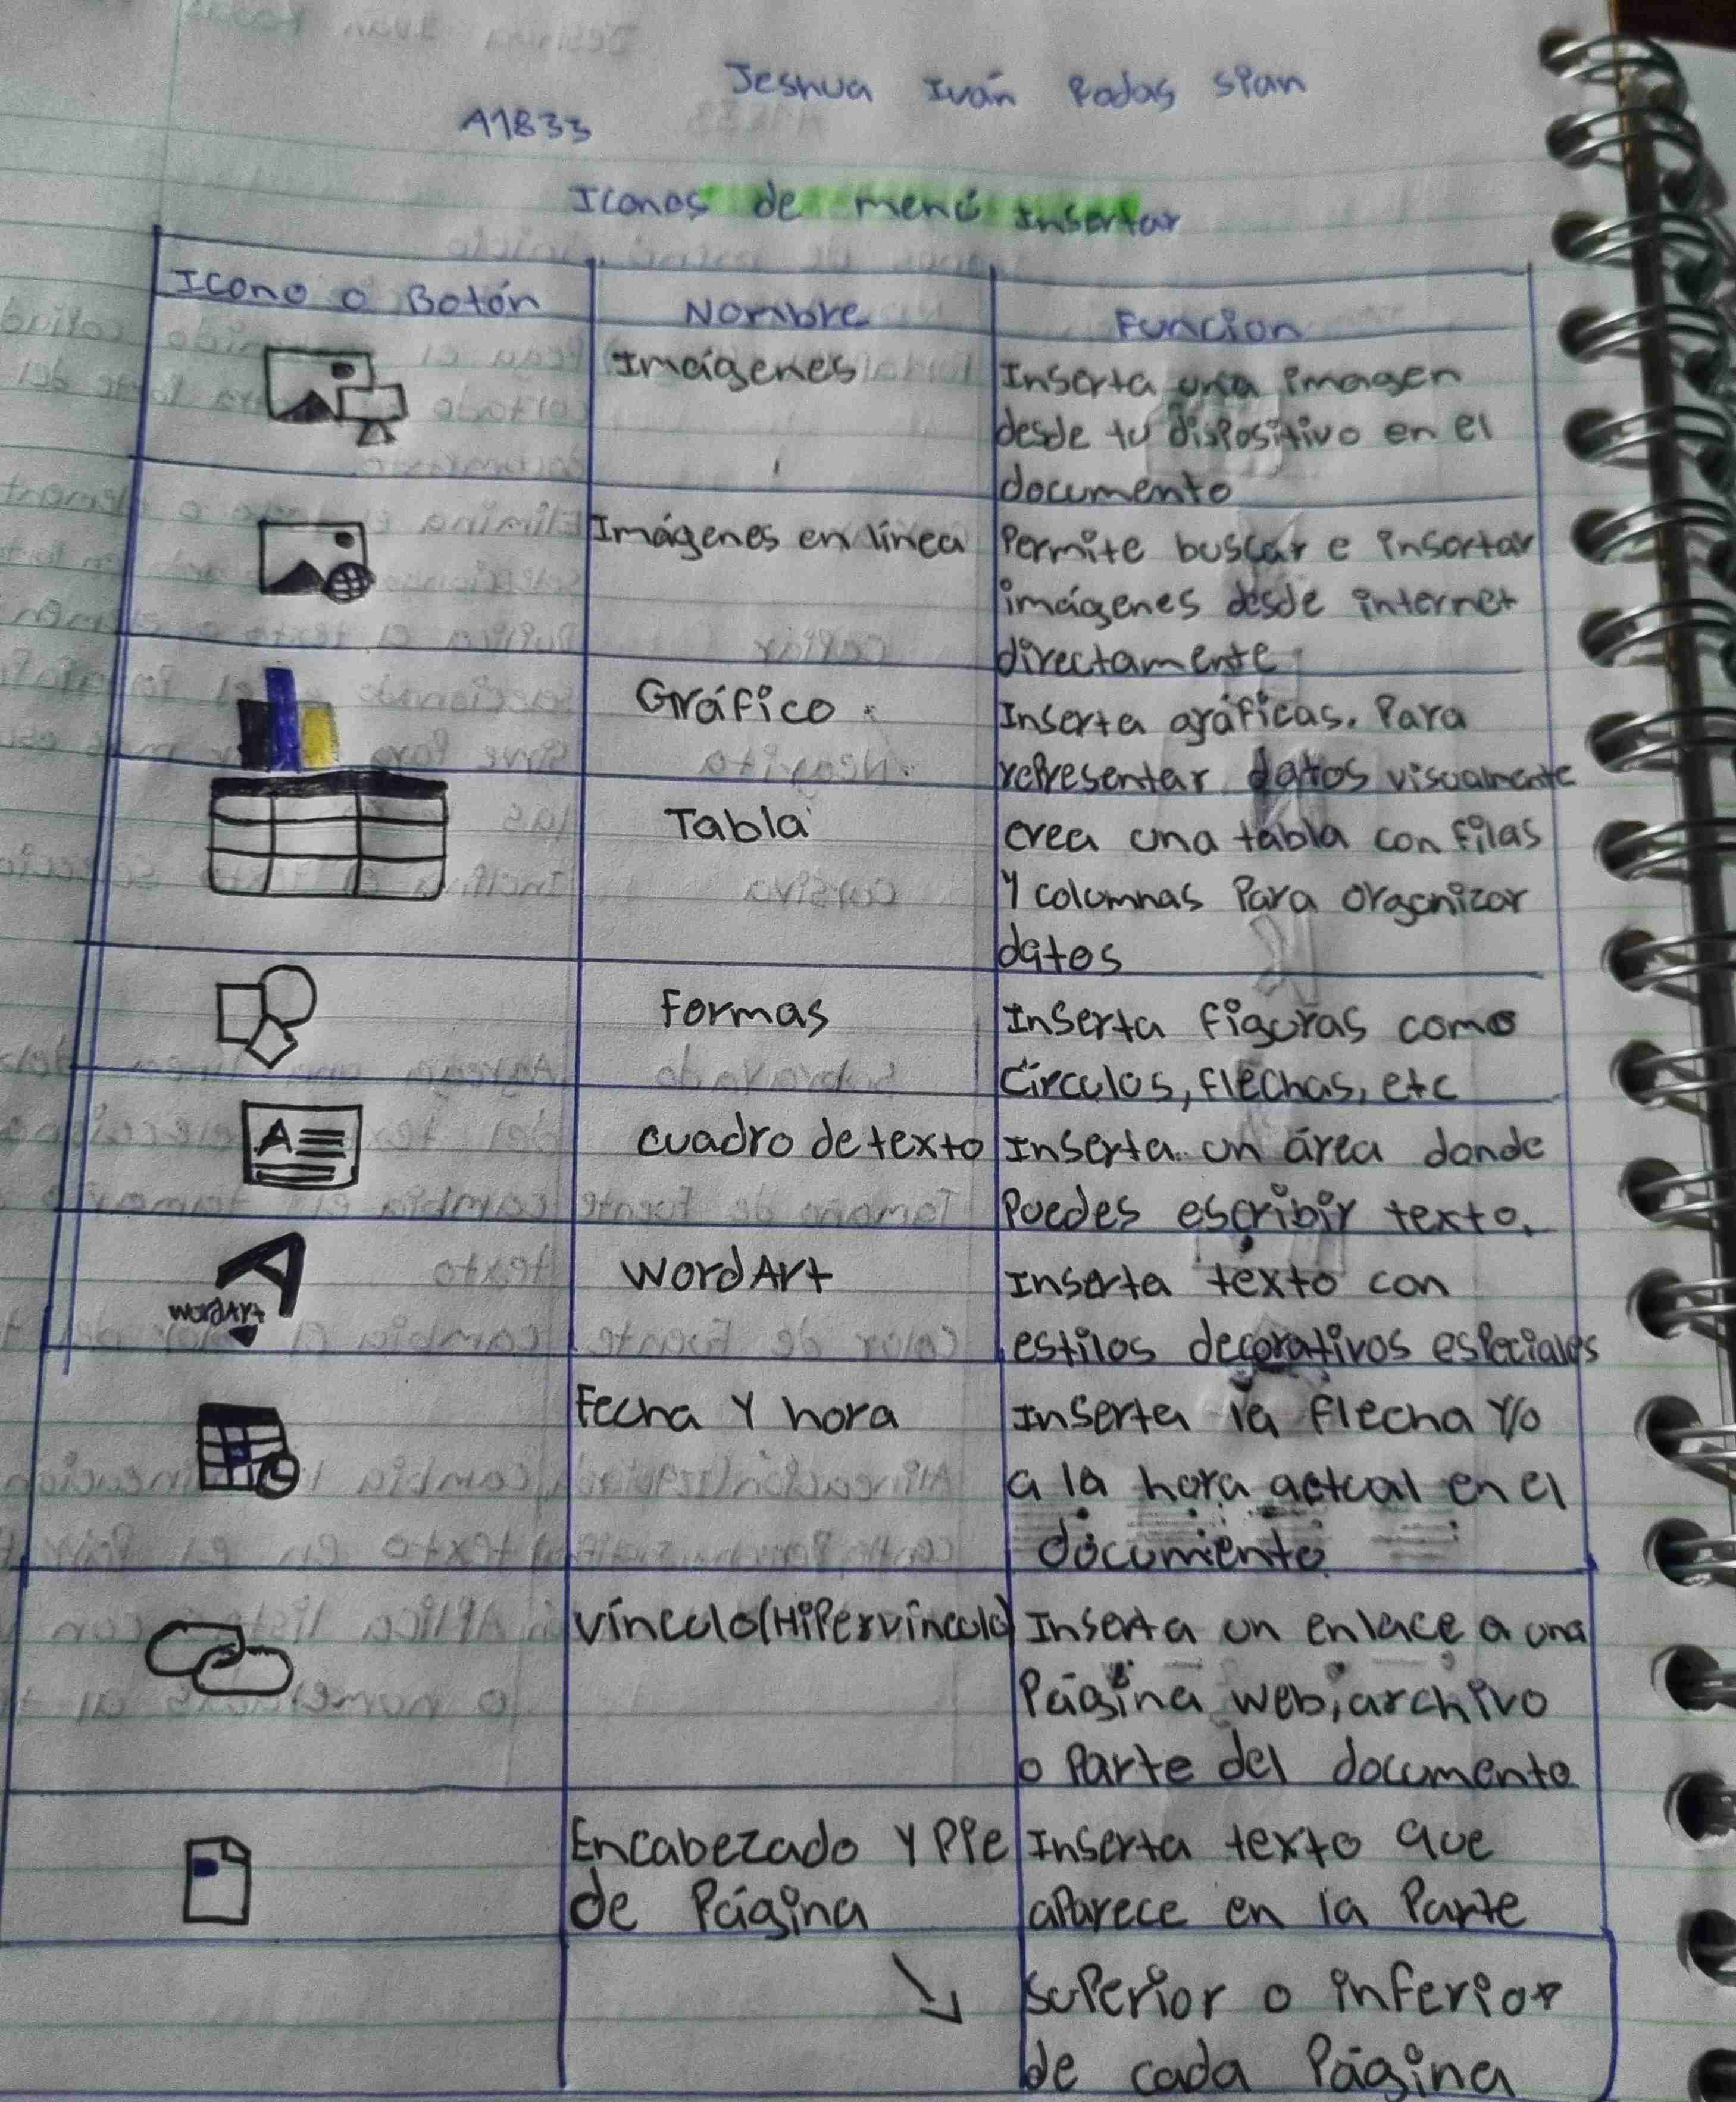 Jeshua Iván Rodas Sian
A1833
Iconos de menú insertar
Icono o Botón
Nombre
Funcion
Imágenes
Inserta una imagen
desde tu dispositivo en el
documento
Imágenes en línea
Permite buscar e insertar
imágenes desde internet
directamente
Gráfico
Inserta gráficas. Para
representar datos visualmente
Tabla
crea una tabla con filas
y columnas Para organizar
datos
Formas
Inserta figuras como
círculos, flechas, etc
A
cuadro de texto
Inserta un área donde
Puedes escribir texto.
A
WordArt
WordArt
Inserta texto con
estilos decorativos especiales
Fecha y hora
Inserta la flecha y/o
a la hora actual en el
documento
vínculo(Hipervínculo)
Inserta un enlace a una
Página web, archivo
o Parte del documento
Encabezado y Pie
de Página
Inserta texto que
aparece en la Parte
superior o inferior
de cada Página